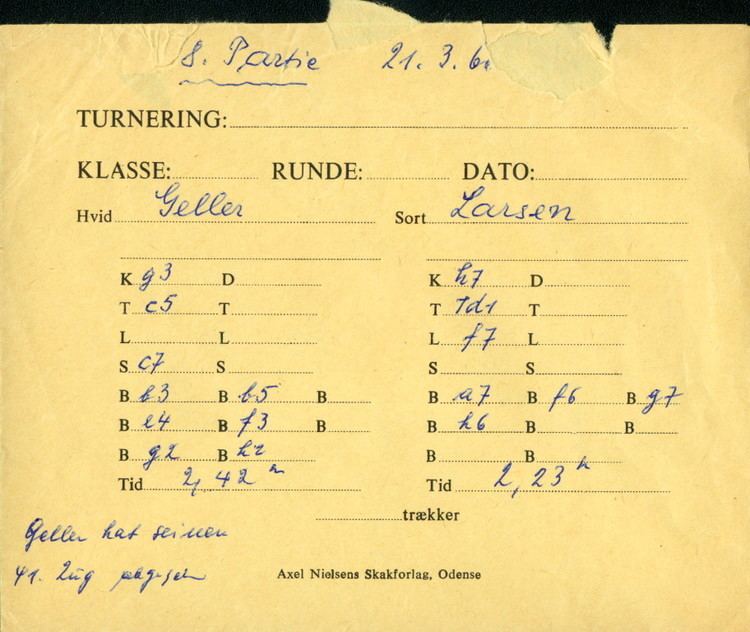 8. Partie 21. 3. 6
TURNERING:
KLASSE: RUNDE: DATO:
Hvid Geller Sort Larsen
K g3 D K h7 D
T c5 T T Td1 T
L L L f7 L
S c7 S S S
B b3 B b5 B B a7 B f6 B g7
B e4 B f3 B B h6 B B
B g2 B h2 B B
Tid 2, 42 m Tid 2, 23
trækker
Geller hat seinen
41. Zug abgegeben
Axel Nielsens Skakforlag, Odense